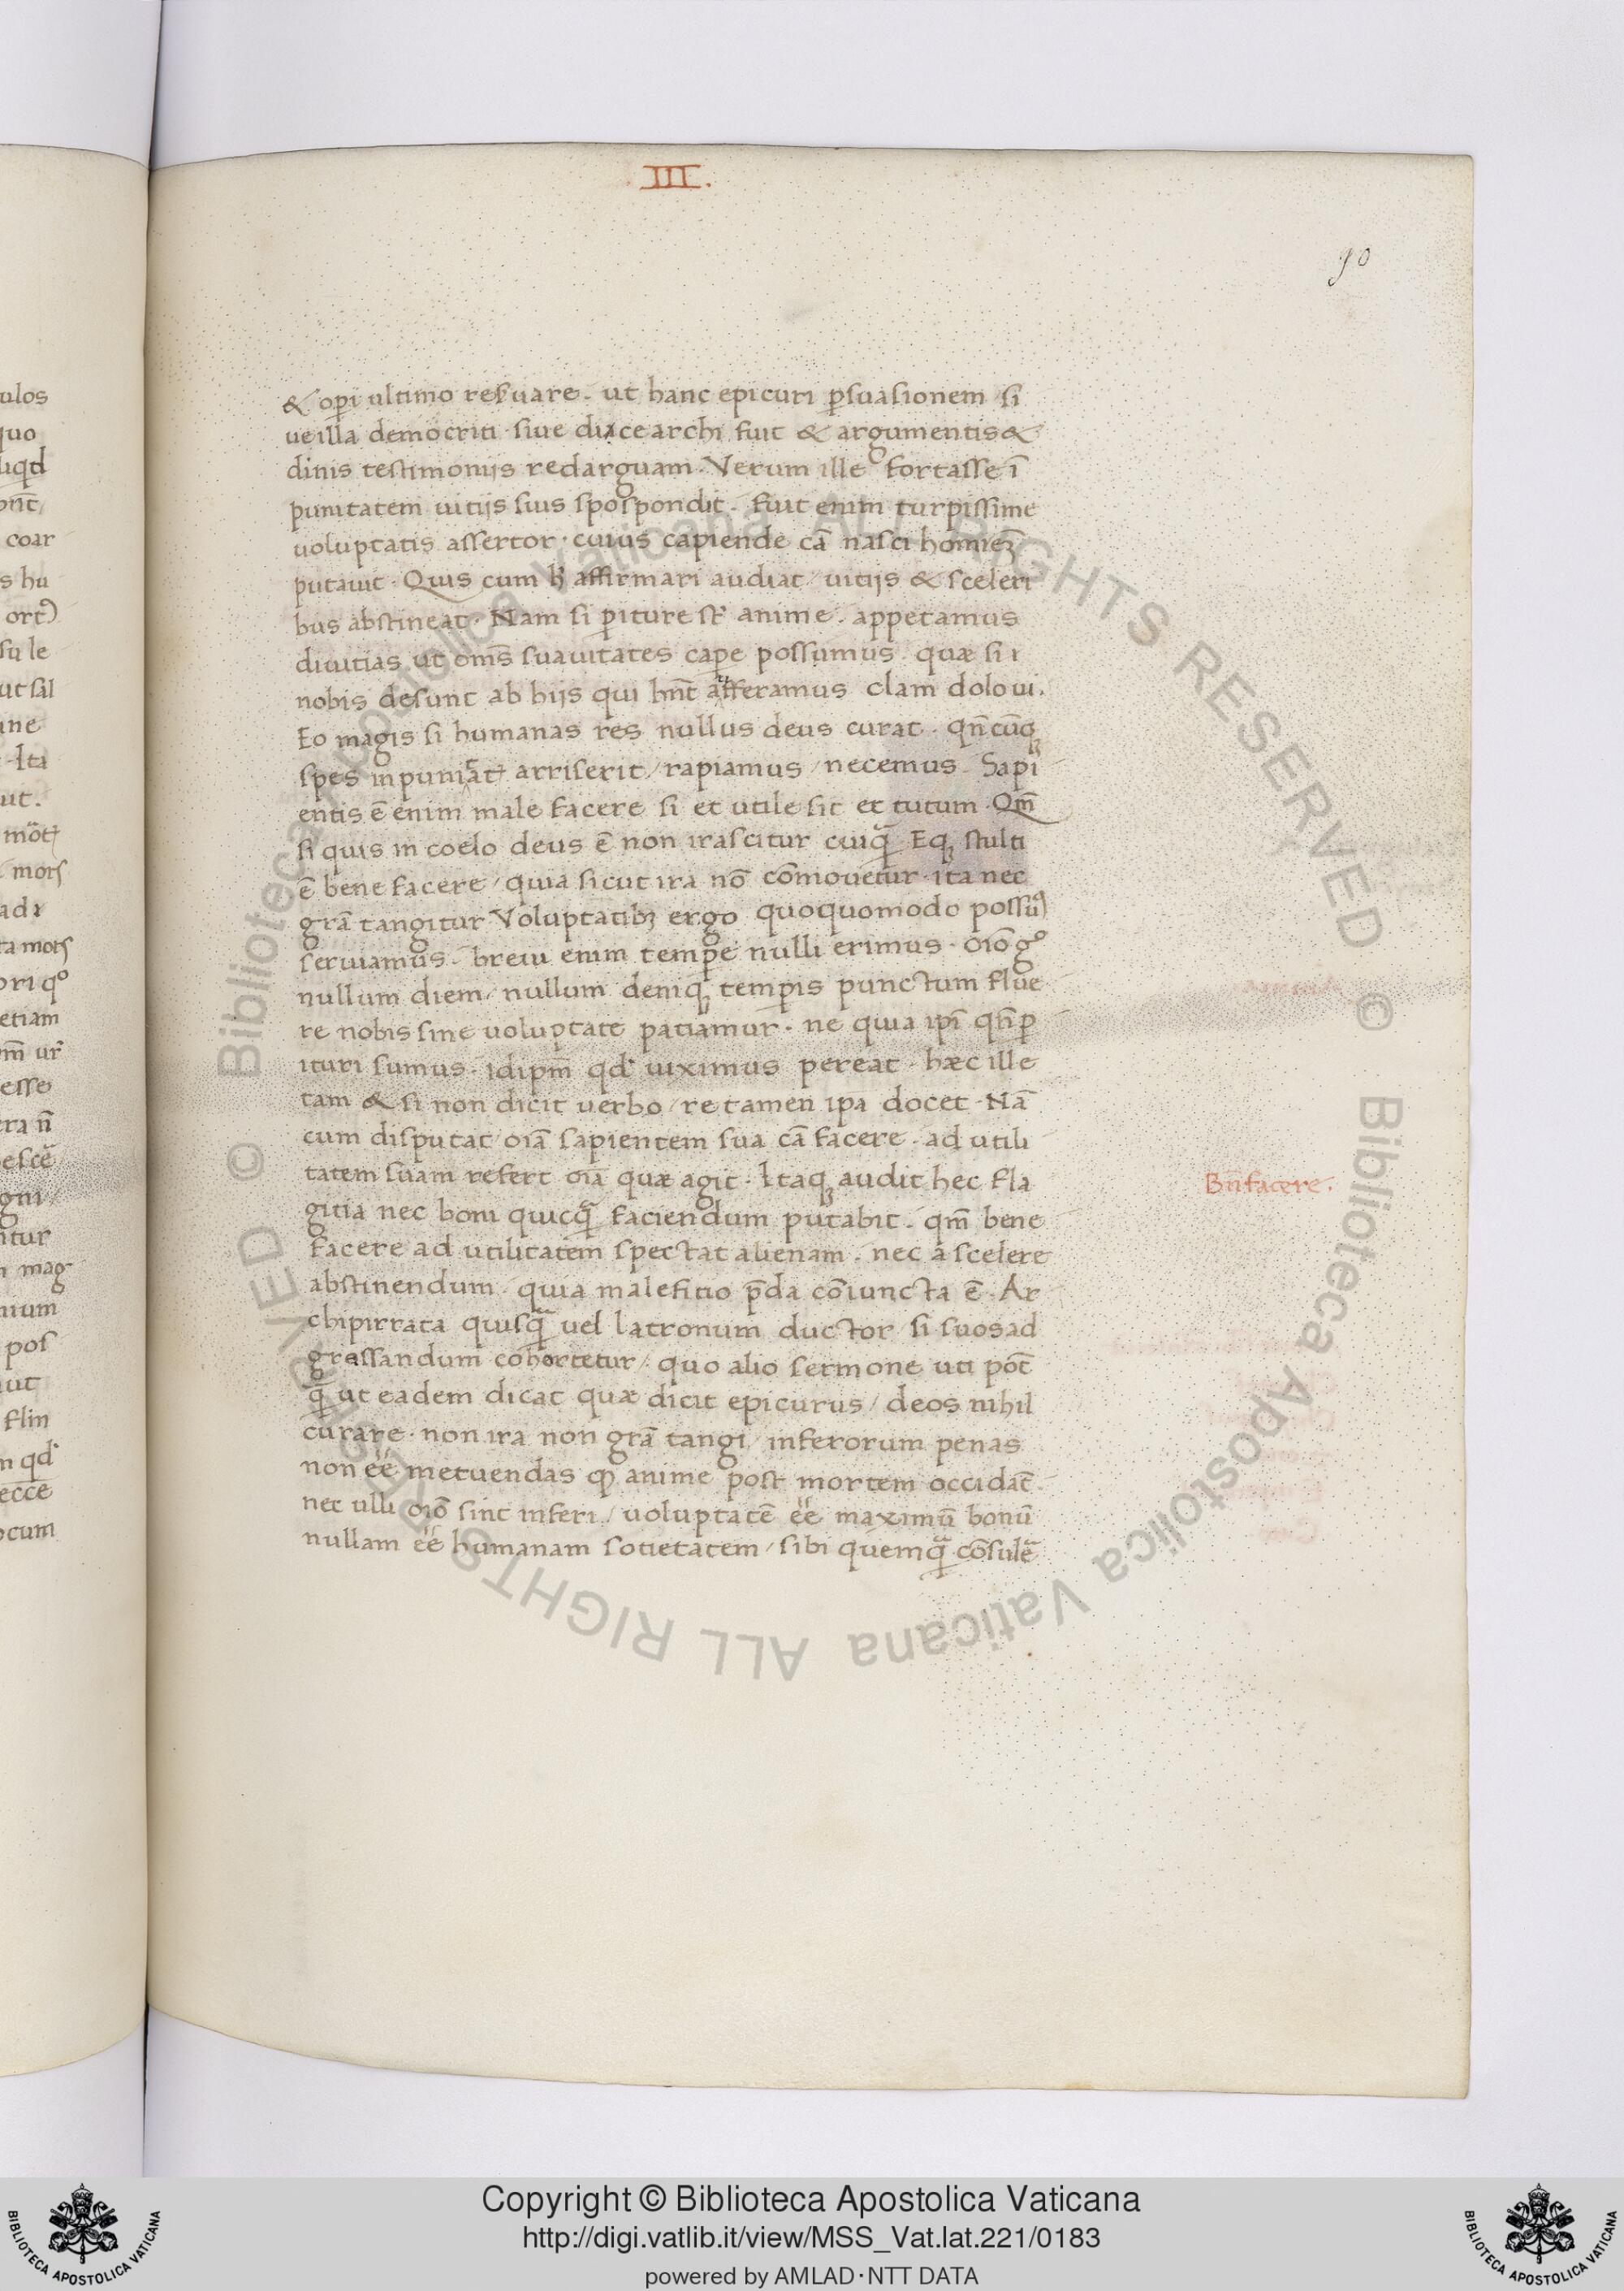 .III.
90
& oꝑi ultimo res̓uare. ut hanc epicuri ꝑsuasionem si
ue illa democriti · siue diacearchi fuit & argumentis &
diuinis testimoniis redarguam. Verum ille fortasse ī
punitatem uitijs suis spospondit. fuit enim turpissime
uoluptatis assertor · cuius capiende cā nasci homieꝫ
putauit · Quis cum h̓ affirmari audiat / uitijs & sceleri
bus abstineat · Nam si ꝑiture st̄ anime . appetamus
diuitias ut om̄s suauitates caꝑe possumus . quæ si
nobis desunt ab hijs qui hn̄t afferamus clam dolo ui.
Eo magis si humanas res nullus deus curat . qn̄cūqꝫ
spes inpunitat̄ arriserit / rapiamus / necemus . Sapi
entis ē enim male facere si et utile sit et tutum . Qm̄
si quis in coelo deus ē non irascitur cuiq̄ Eqꝫ stulti
ē bene facere / quia sicut ira nō cōmouetur · ita nec
grā tangitur Voluptatibꝫ ergo quoquomodo possum᷒
seruiamus . breui enim temꝑe nulli erimus . oīo gͦ
nullum diem / nullum deniqꝫ temꝑis punctum flue
re nobis sine uoluptate patiamur . ne quia ip̄i qn̄ꝑ
ituri sumus . idip̄m qd̓ uiximus pereat . hæc ille
tam & si non dicit uerbo / re tamen ip̄a docet · Nā
cum disputat oīa sapientem sua cā facere . ad utili
tatem suam refert oīa quæ agit . Itaqꝫ audit hec fla
gitia nec boni quicq̄ faciendum putabit . qm̄ bene
facere ad utilitatem spectat alienam . nec a scelere
abstinendum / quia malefitio p̄da cōiuncta ē . Ar
chipirrata quisq̄ uel latronum ductor si suos ad
grassandum cohortetur / quo alio sermone uti pōt
q̄ ut eadem dicat quæ dicit epicurus / deos nihil
curare · non ira non grā tangi / inferorum penas
non ēē metuendas ꝙ anime post mortem occidāt .
nec ulli oīo sint inferi / uoluptatē ēē maximū bonū
nullam ēē humanam sotietatem / sibi quemq̄ cōsulē
Bn̄facere.
Copyright © Biblioteca Apostolica Vaticana
http://digi.vatlib.it/view/MSS_Vat.lat.221/0183
powered by AMLAD·NTT DATA